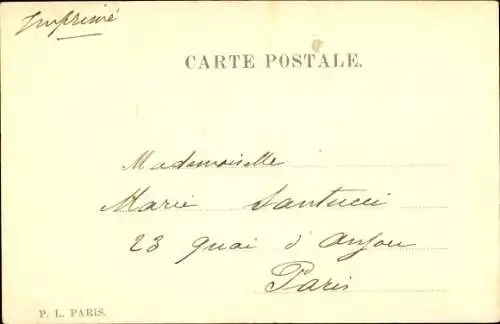 Imprimé
CARTE POSTALE.
Mademoiselle
Marie Santucci
23 quai d'Anjou
Paris
P. L. PARIS.